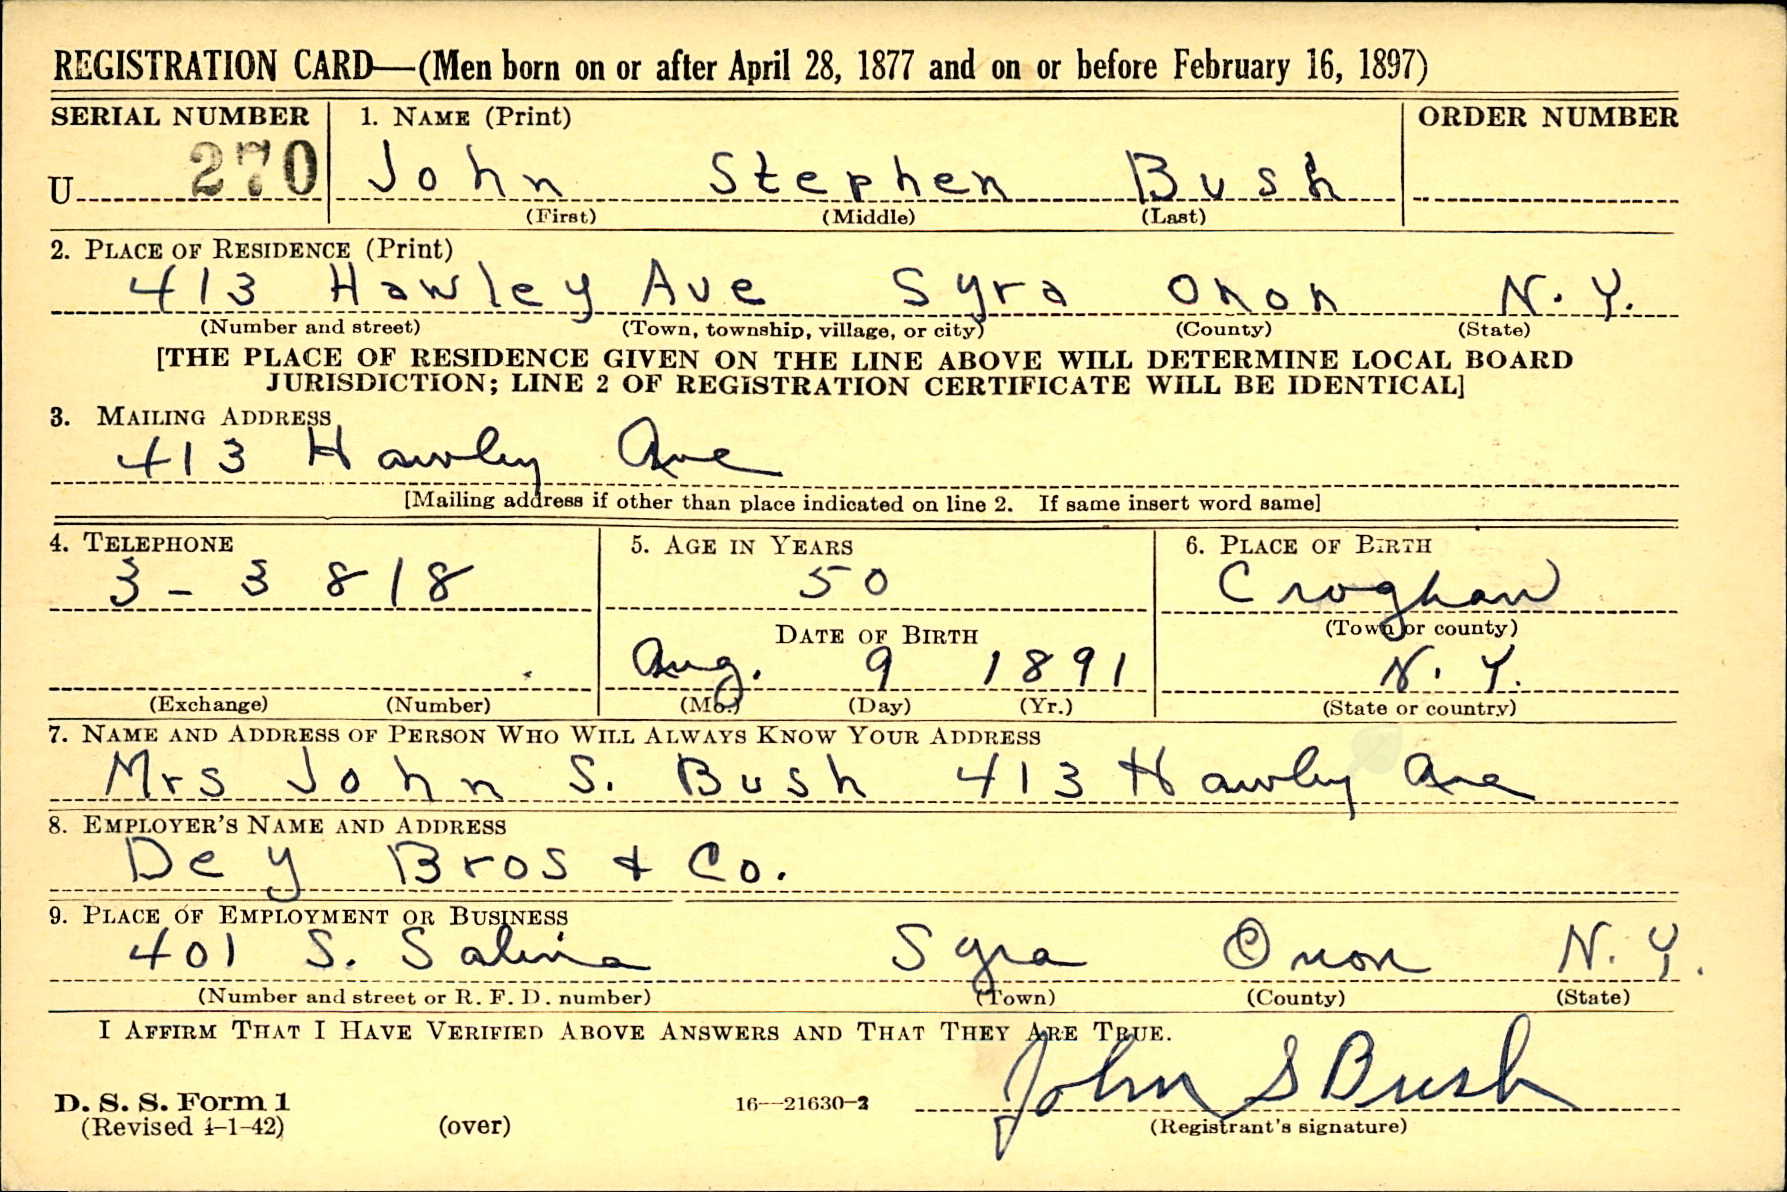 REGISTRATION CARD—(Men born on or after April 28, 1877 and on or before February 16, 1897)
SERIAL NUMBER 1. NAME (Print) ORDER NUMBER
U 270 John Stephen Bush
(First) (Middle) (Last)
2. PLACE OF RESIDENCE (Print)
413 Hawley Ave Syra Onon N. Y.
(Number and street) (Town, township, village, or city) (County) (State)
[THE PLACE OF RESIDENCE GIVEN ON THE LINE ABOVE WILL DETERMINE LOCAL BOARD
JURISDICTION; LINE 2 OF REGISTRATION CERTIFICATE WILL BE IDENTICAL]
3. MAILING ADDRESS
413 Hawley Ave
[Mailing address if other than place indicated on line 2. If same insert word same]
4. TELEPHONE 5. AGE IN YEARS 6. PLACE OF BIRTH
3-3818 50 Croghan
DATE OF BIRTH (Town or county)
Aug. 9 1891 N. Y.
(Exchange) (Number) (Mo.) (Day) (Yr.) (State or country)
7. NAME AND ADDRESS OF PERSON WHO WILL ALWAYS KNOW YOUR ADDRESS
Mrs John S. Bush 413 Hawley Ave
8. EMPLOYER'S NAME AND ADDRESS
Dey Bros + Co.
9. PLACE OF EMPLOYMENT OR BUSINESS
401 S. Salina Syra Onon N. Y.
(Number and street or R. F. D. number) (Town) (County) (State)
I AFFIRM THAT I HAVE VERIFIED ABOVE ANSWERS AND THAT THEY ARE TRUE.
John S Bush
D. S. S. Form 1 16—21630-2
(Revised 4-1-42) (over) (Registrant's signature)